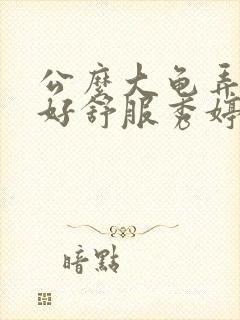 公麽大龟弄
好舒服秀婷
暗點